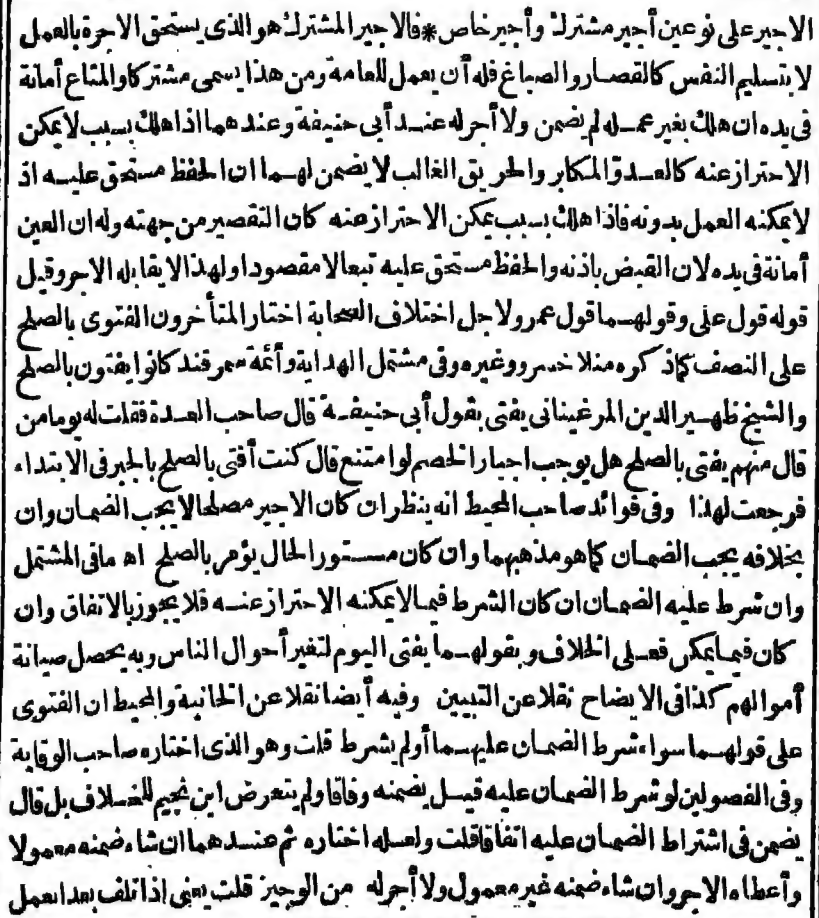 الاجير على نوعين أجير مشترك وأجير خاص * فالاجير المشترك هو الذى يستحق الاجرة بالعمل
لا بتسليم النفس كالقصار والصباغ فله أن يعمل للعامة ومن هذا يسمى مشتركا والمتاع أمانة
فى يده ان هلك بغير عمله لم يضمن ولا أجر له عند أبى حنيفة وعندهما اذا هلك بسبب لا يمكن
الاحتراز عنه كالعدو المكابر والحريق الغالب لا يضمن لهما ان الحفظ مستحق عليه اذ
لا يمكنه العمل بدونه فاذا هلك بسبب يمكن الاحتراز عنه كان التقصير من جهته وله ان العين
أمانة فى يده لان القبض باذنه والحفظ مستحق عليه تبعا لا مقصودا ولهذا لا يقابله الاجر وقيل
قوله قول على وقولهما قول عمر ولاجل اختلاف الصحابة اختار المتأخرون الفتوى بالصلح
على النصف كما ذكره منلا خسرو وغيره وفى مشتمل الهداية وأئمة سمرقند كانوا يفتون بالصلح
والشيخ ظهير الدين المرغينانى يفتى بقول أبى حنيفة قال صاحب العدة فقلت له يوما من
قال منهم يفتى بالصلح هل يوجب اجبار الخصم لو امتنع قال كنت أفتى بالصلح بالجبر فى الابتداء
فرجعت لهذا وفى فوائد صاحب المحيط انه ينظر ان كان الاجير مصلحا لا يجب الضمان وان
بخلافه يجب الضمان كما هو مذهبهما وان كان مستور الحال يؤمر بالصلح اه ما فى المشتمل
وان شرط عليه الضمان ان كان الشرط فيما لا يمكنه الاحتراز عنه فلا يجوز بالاتفاق وان
كان فيما يمكن فعلى الخلاف وبقولهما يفتى اليوم لتغير أحوال الناس وبه يحصل صيانة
أموالهم كذا فى الايضاح نقلا عن التبيين وفيه أيضا نقلا عن الخانية والمحيط ان الفتوى
على قولهما سواء شرط الضمان عليهما أو لم يشرط قلت وهو الذى اختاره صاحب الوقاية
وفى الفصولين لو شرط الضمان عليه قيل يضمنه وفاقا ولم يتعرض ابن نجيم للخلاف بل قال
يضمن فى اشتراط الضمان عليه اتفاقا قلت ولعله اختاره ثم عندهما ان شاء ضمنه معمولا
وأعطاه الاجر وان شاء ضمنه غير معمول ولا أجر له من الوجيز قلت يعنى اذا تلف بعد العمل